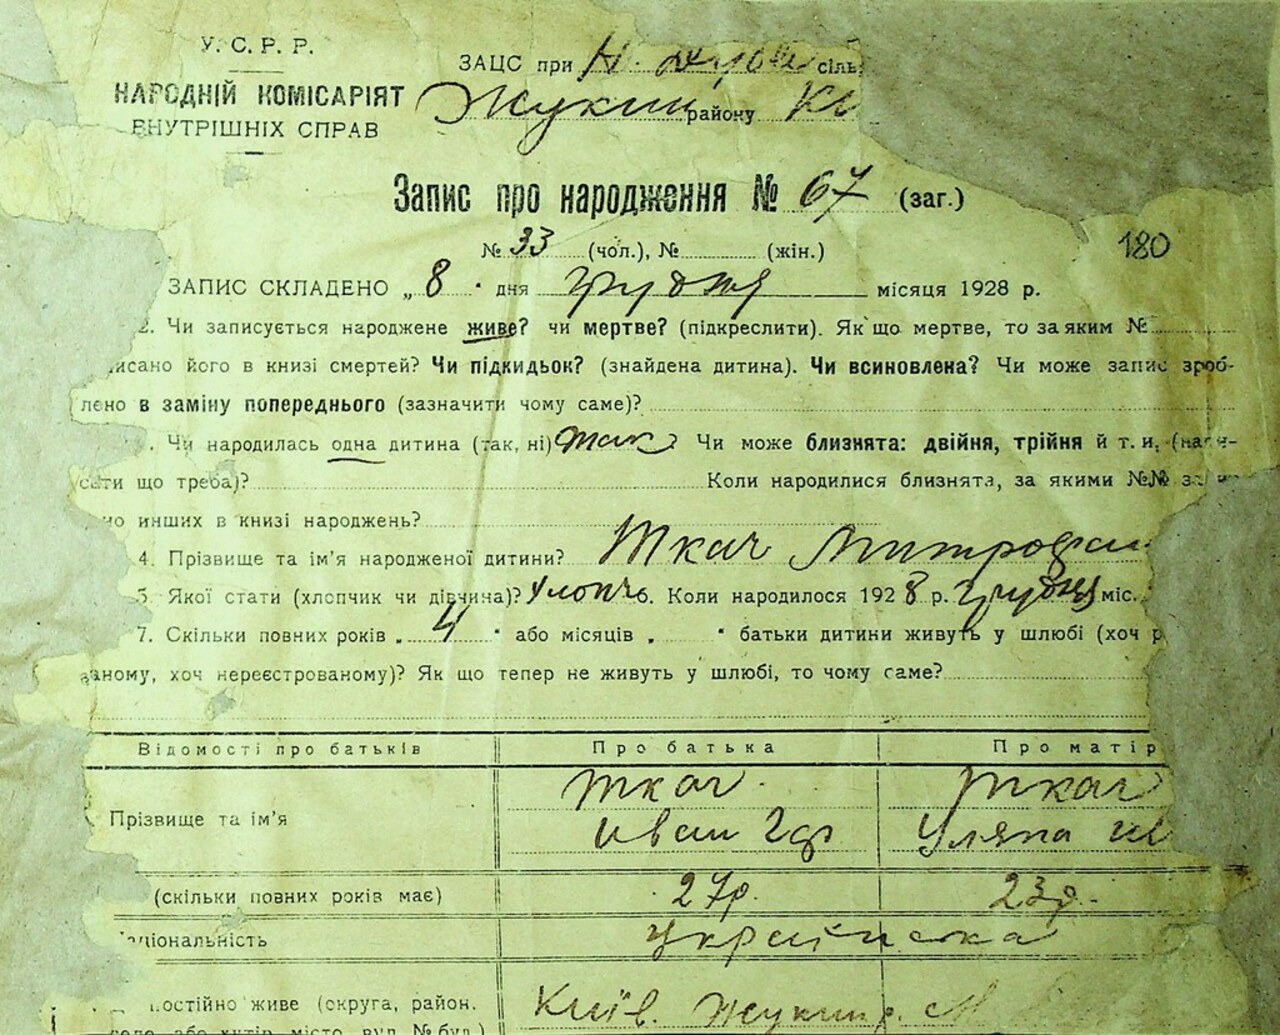 У. С. Р. Р.
НАРОДНІЙ КОМІСАРІЯТ
ВНУТРІШНІХ СПРАВ
ЗАЦС при Н. сіль
Жукин району Ки
Запис про народження № 67 (заг.)
№ 33 (чол.), № (жін.)
180
ЗАПИС СКЛАДЕНО „ 8 " дня грудня місяця 1928 р.
2. Чи записується народжене живе? чи мертве? (підкреслити). Як що мертве, то за яким №
исано його в книзі смертей? Чи підкидьок? (знайдена дитина). Чи всиновлена? Чи може запис зроб-
лено в заміну попереднього (зазначити чому саме)?
. Чи народилась одна дитина (так, ні) так Чи може близнята: двійня, трійня й т. и. (напи-
сати що треба)? Коли народилися близнята, за якими №№
но инших в книзі народжень?
4. Прізвище та ім'я народженої дитини? Ткач Митрофан
5. Якої стати (хлопчик чи дівчина)? Хлопч 6. Коли народилося 1928 р. грудня міс.
7. Скільки повних років „ 4 " або місяців „ " батьки дитини живуть у шлюбі (хоч р
ваному, хоч нереєстрованому)? Як що тепер не живуть у шлюбі, то чому саме?
Відомості про батьків Про батька Про матір
Прізвище та ім'я Ткач Ткач
Иван Уляна
(скільки повних років має) 27р. 23р.
Національність Українська
постійно живе (округа, район, Київ. Жукин р.
село або хутір, місто, вул. № буд.)